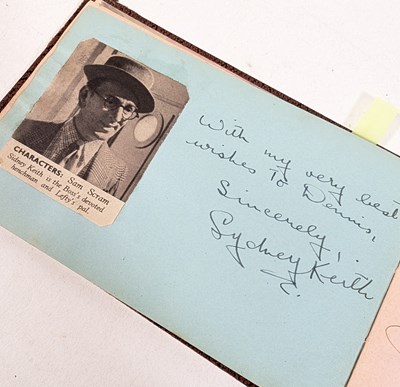 CHARACTERS: Sam Scram
Sidney Keith is the Boss's devoted
henchman and Lefty's pal.
With my very best
wishes To Dennis,
Sincerely,
Sydney Keith